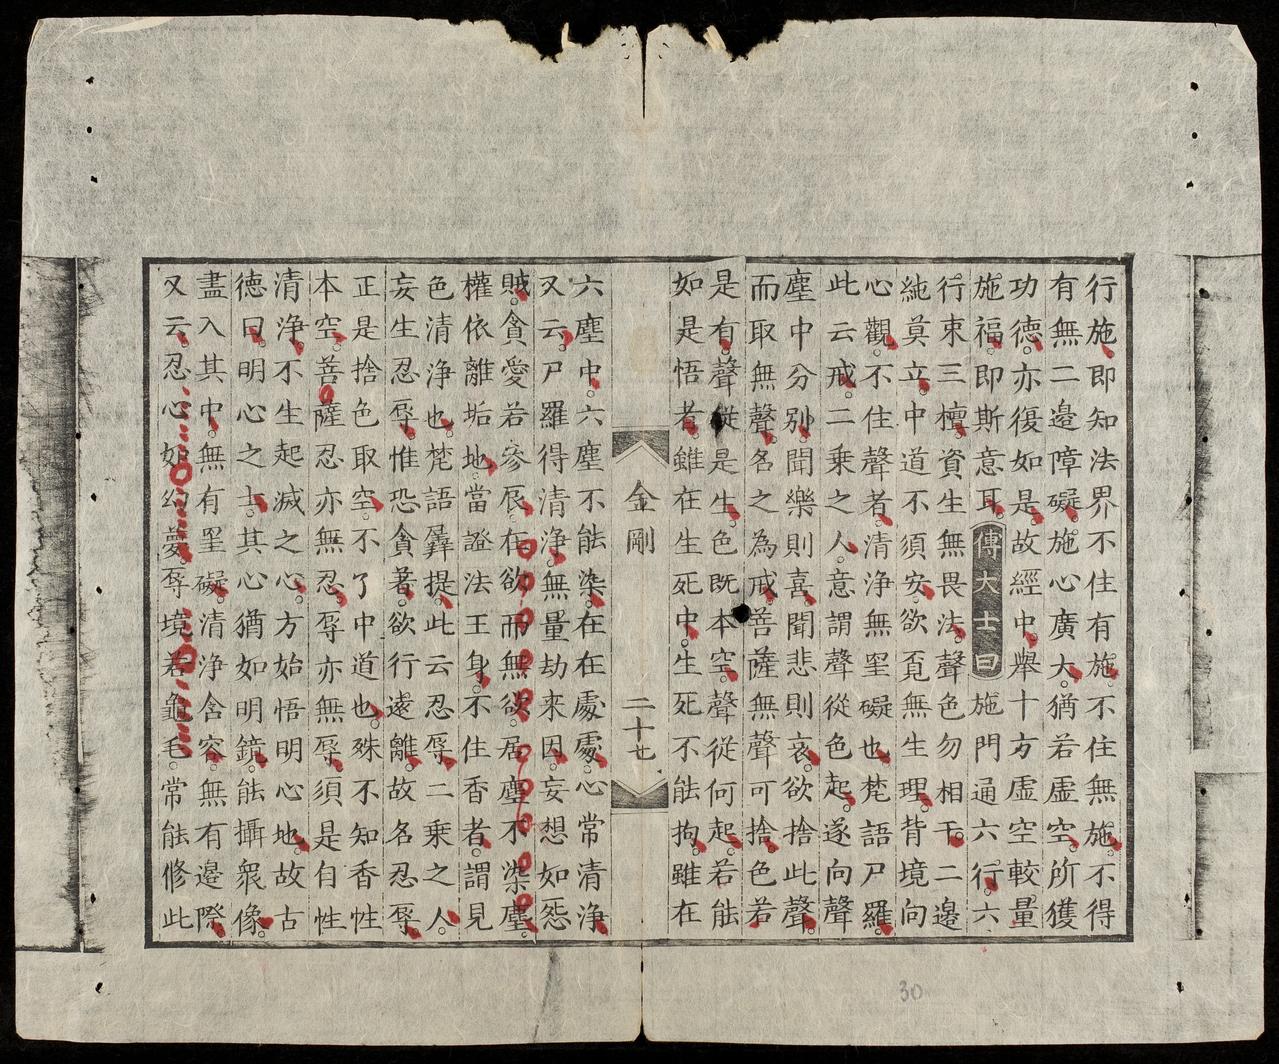 行施即知法界不住有施不住無施不得
有無二邊障礙施心廣大猶若虛空所獲
功德亦復如是故經中舉十方虛空較量
施福即斯意耳傅大士曰施門通六行六
行束三檀資生無畏法聲色勿相干二邊
純莫立中道不須安欲覔無生理背境向
心觀不住聲者清淨無罣礙也梵語尸羅
此云戒二乘之人意謂聲從色起遂向聲
塵中分別聞樂則喜聞悲則哀欲捨此聲
而取無聲名之為戒菩薩無聲可捨色若
是有聲從是生色既本空聲從何起若能
如是悟者雖在生死中生死不能拘雖在
金剛
二十七
六塵中六塵不能染在在處處心常清淨
又云尸羅得清淨無量劫来因妄想如怨
賊貪愛若參辰在欲而無欲居塵不染塵
權依離垢地當證法王身不住香者謂見
色清淨也梵語羼提此云忍辱二乘之人
妄生忍辱惟恐貪著欲行遠離故名忍辱
正是捨色取空不了中道也殊不知香性
本空菩薩忍亦無忍辱亦無辱須是自性
清淨不生起滅之心方始悟明心地故古
德曰明心之士其心猶如明鏡能攝衆像
盡入其中無有罣礙清淨含容無有邊際
又云忍心如幻夢辱境若龜毛常能修此
30